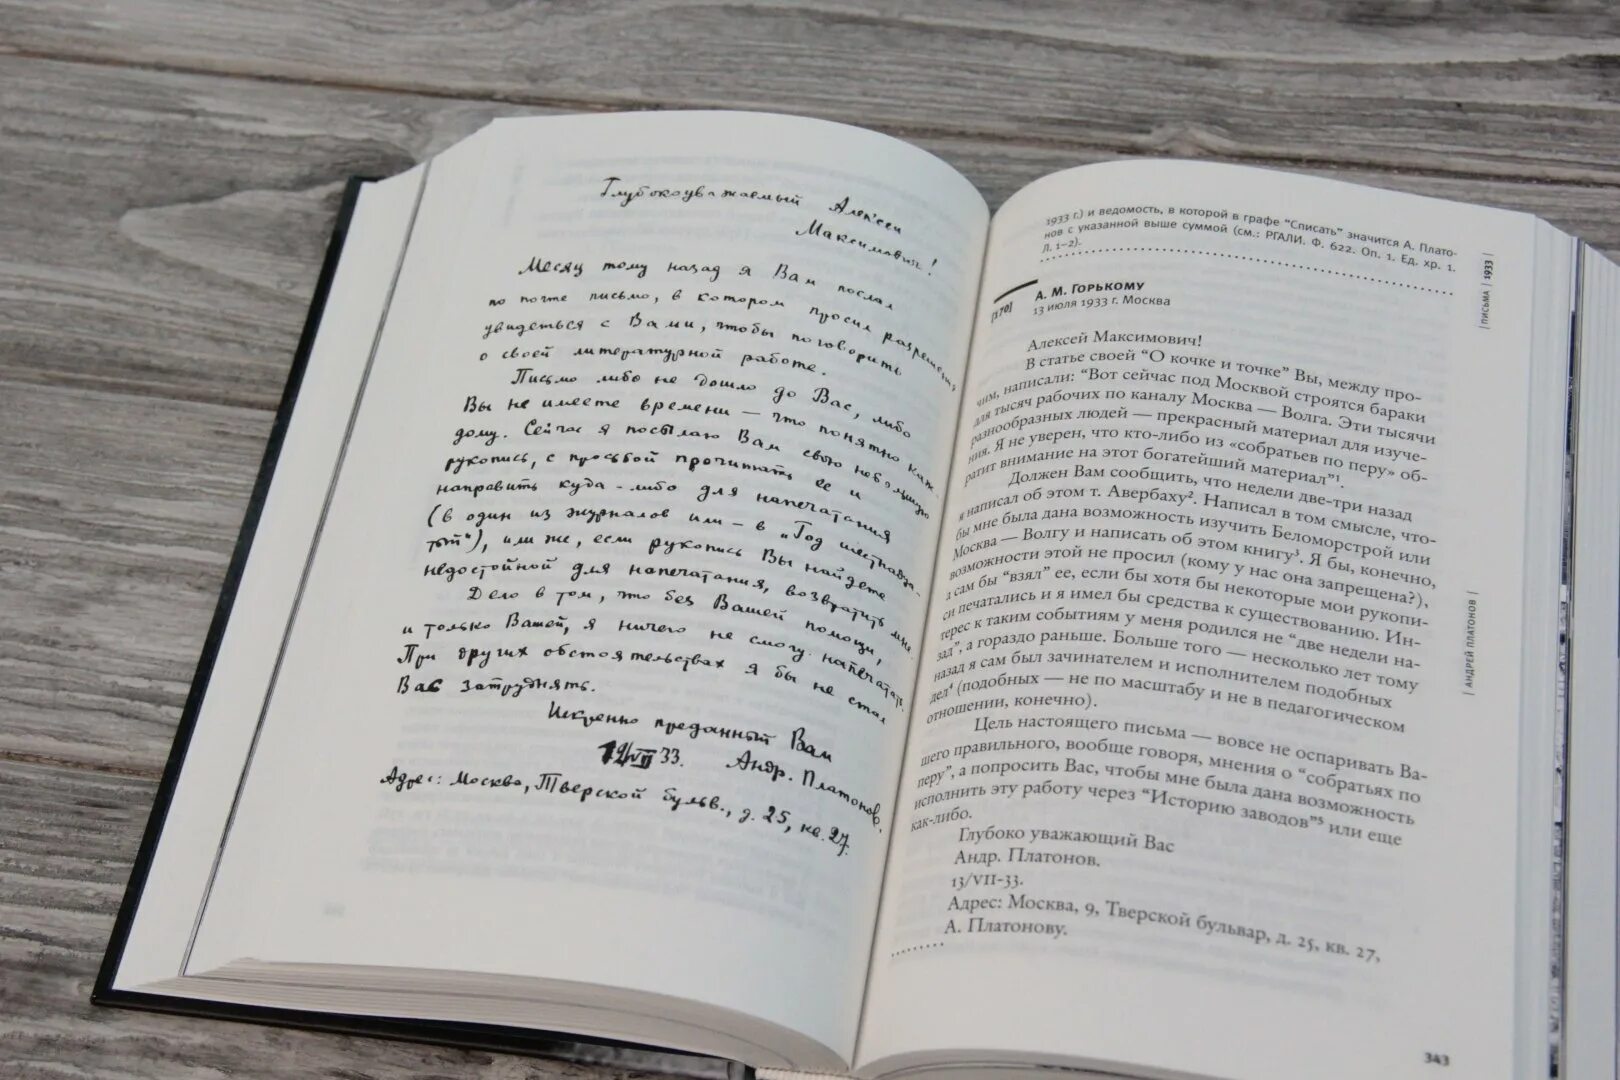 Глубокоуважаемый Алексей
Максимович!
Месяц тому назад я Вам послал
по почте письмо, в котором просил разрешения
увидеться с Вами, чтобы поговорить
о своей литературной работе.
Письмо либо не дошло до Вас, либо
Вы не имеете времени — что понятно каж-
дому. Сейчас я посылаю Вам свою небольшую
рукопись, с просьбой прочитать ее и
направить куда-либо для напечатания
(в один из журналов или – в „Год шестнадца-
тый“), или же, если рукопись Вы найдете
недостойной для напечатания, возвратить мне.
Дело в том, что без Вашей помощи,
и только Вашей, я ничего не смогу напечатать.
При других обстоятельствах я бы не стал
Вас затруднять.
Искренно преданный Вам
VII 33. Андр. Платонов.
Адрес: Москва, Тверской бульв., д. 25, кв. 27.
1933 г.) и ведомость, в которой в графе "Списать" значится А. Плато-
нов с указанной выше суммой (см.: РГАЛИ. Ф. 622. Оп. 1. Ед. хр. 1.
Л. 1–2).
[170] А. М. ГОРЬКОМУ
13 июля 1933 г. Москва
Алексей Максимович!
В статье своей "О кочке и точке" Вы, между про-
чим, написали: "Вот сейчас под Москвой строятся бараки
для тысяч рабочих по каналу Москва — Волга. Эти тысячи
разнообразных людей — прекрасный материал для изуче-
ния. Я не уверен, что кто-либо из «собратьев по перу» об-
ратит внимание на этот богатейший материал"¹.
Должен Вам сообщить, что недели две-три назад
я написал об этом т. Авербаху². Написал в том смысле, что-
бы мне была дана возможность изучить Беломорстрой или
Москва — Волгу и написать об этом книгу³. Я бы, конечно,
возможности этой не просил (кому у нас она запрещена?),
а сам бы "взял" ее, если бы хотя бы некоторые мои рукопи-
си печатались и я имел бы средства к существованию. Ин-
терес к таким событиям у меня родился не "две недели на-
зад", а гораздо раньше. Больше того — несколько лет тому
назад я сам был зачинателем и исполнителем подобных
дел⁴ (подобных — не по масштабу и не в педагогическом
отношении, конечно).
Цель настоящего письма — вовсе не оспаривать Ва-
шего правильного, вообще говоря, мнения о "собратьях по
перу", а попросить Вас, чтобы мне была дана возможность
исполнить эту работу через "Историю заводов"⁵ или еще
как-либо.
Глубоко уважающий Вас
Андр. Платонов.
13/VII-33.
Адрес: Москва, 9, Тверской бульвар, д. 25, кв. 27,
А. Платонову.
| ПИСЬМА | 1933 |
| АНДРЕЙ ПЛАТОНОВ |
343